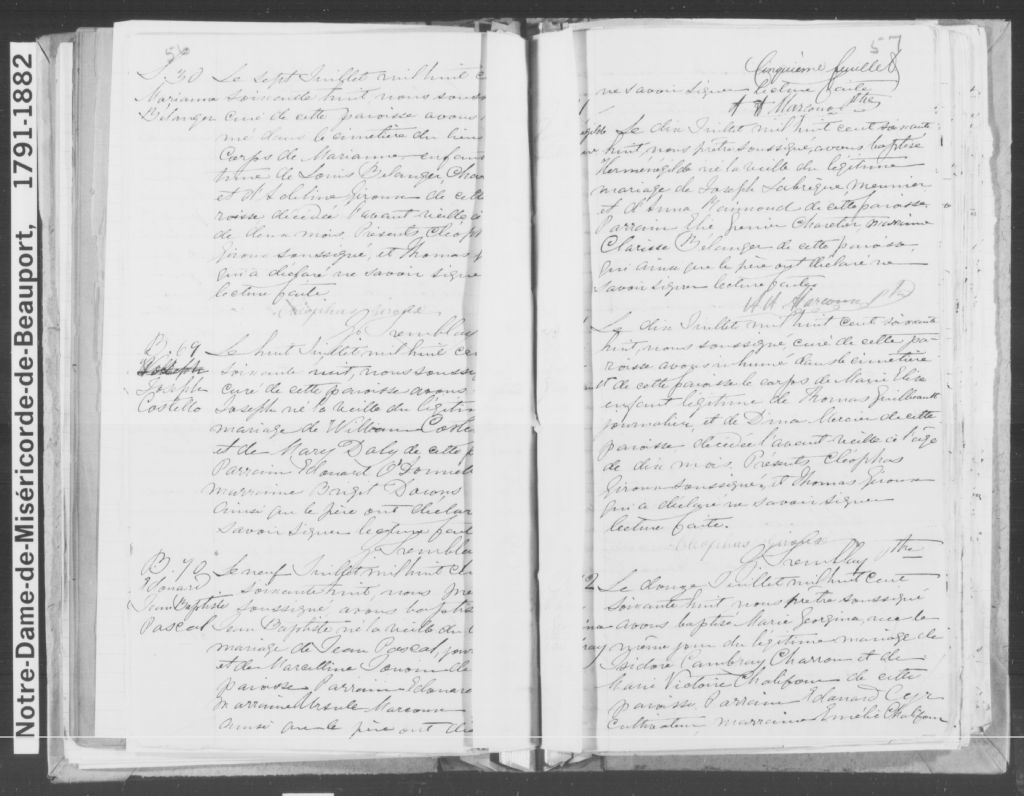 Notre-Dame-de-Miséricorde-de-Beauport, 1791-1882
56
S. 30 Le sept Juillet mil huit c
Marianne soixante huit, nous souss
Bélanger curé de cette paroisse avons
mé dans le cimetière du lieu
Corps de Marianne enfant
time de Louis Belanger, Char
et d'Adeline Giroux de cette
roisse décédée l'avant veille à
de deux mois. Présents, Cléoph
Giroux soussigné, et Thomas
qui a déclaré ne savoir signer
lecture faite
Cléophas Giroux
J. Tremblay
B. 69 Le huit Juillet mil huit ce
Joseph soixante huit, nous souss
Joseph curé de cette paroisse avons
Costello Joseph né la veille du légiti
mariage de William Costel
et de Mary Daly de cette p
Parrain Edouard O'Donnel
marraine Brigit Dorons
ainsi que le père ont déclar
savoir signer lecture fait
J. Trembla
B. 70 Le neuf Juillet mil huit ce
soixante huit, nous pre
Jean Baptiste soussigné avons baptis
Pascal Jean Baptiste né la veille du l
mariage de Jean Pascal, jour
et de Marcelline
paroisse Parrain Edouard
marraine Ursule Marcoux
ainsi que le père ont déc
57
Cinquième feuillet
ne savoir signer lecture faite
H. H. Marcoux Ptre
Le dix Juillet mil huit cent soixante
huit, nous prêtre soussigné, avons baptisé
Herménégilde né la veille du légitime
mariage de Joseph Labrèque meunier
et d'Anna Raymond de cette paroisse
Parrain Elie Grenier Charetier, marraine
Clarisse Bélanger de cette paroisse
qui ainsi que le père ont déclaré ne
savoir signer lecture faite
H. H. Marcoux Ptr
Le dix Juillet mil huit cent soixante
huit, nous soussigné curé de cette pa-
roisse avons inhumé dans le cimetière
de cette paroisse le corps de Marie Elise
enfant légitime de Thomas Guilbeault
journalier, et de Dina Mercier de cette
paroisse décédée l'avant veille à l'âge
de dix mois. Présents Cléophas
Giroux soussigné, et Thomas Giroux
qui a déclaré ne savoir signer
lecture faite.
Cléophas Giroux
J. Tremblay Ptre
Le douze Juillet mil huit cent
soixante huit nous prêtre soussigné
avons baptisé Marie Georgina, née le
même jour du légitime mariage de
Isidore Cambray Charron et de
Marie Victoire Chalifour de cette
paroisse. Parrain Edouard Cyr
Cultivateur, marraine Emélie Chalifour